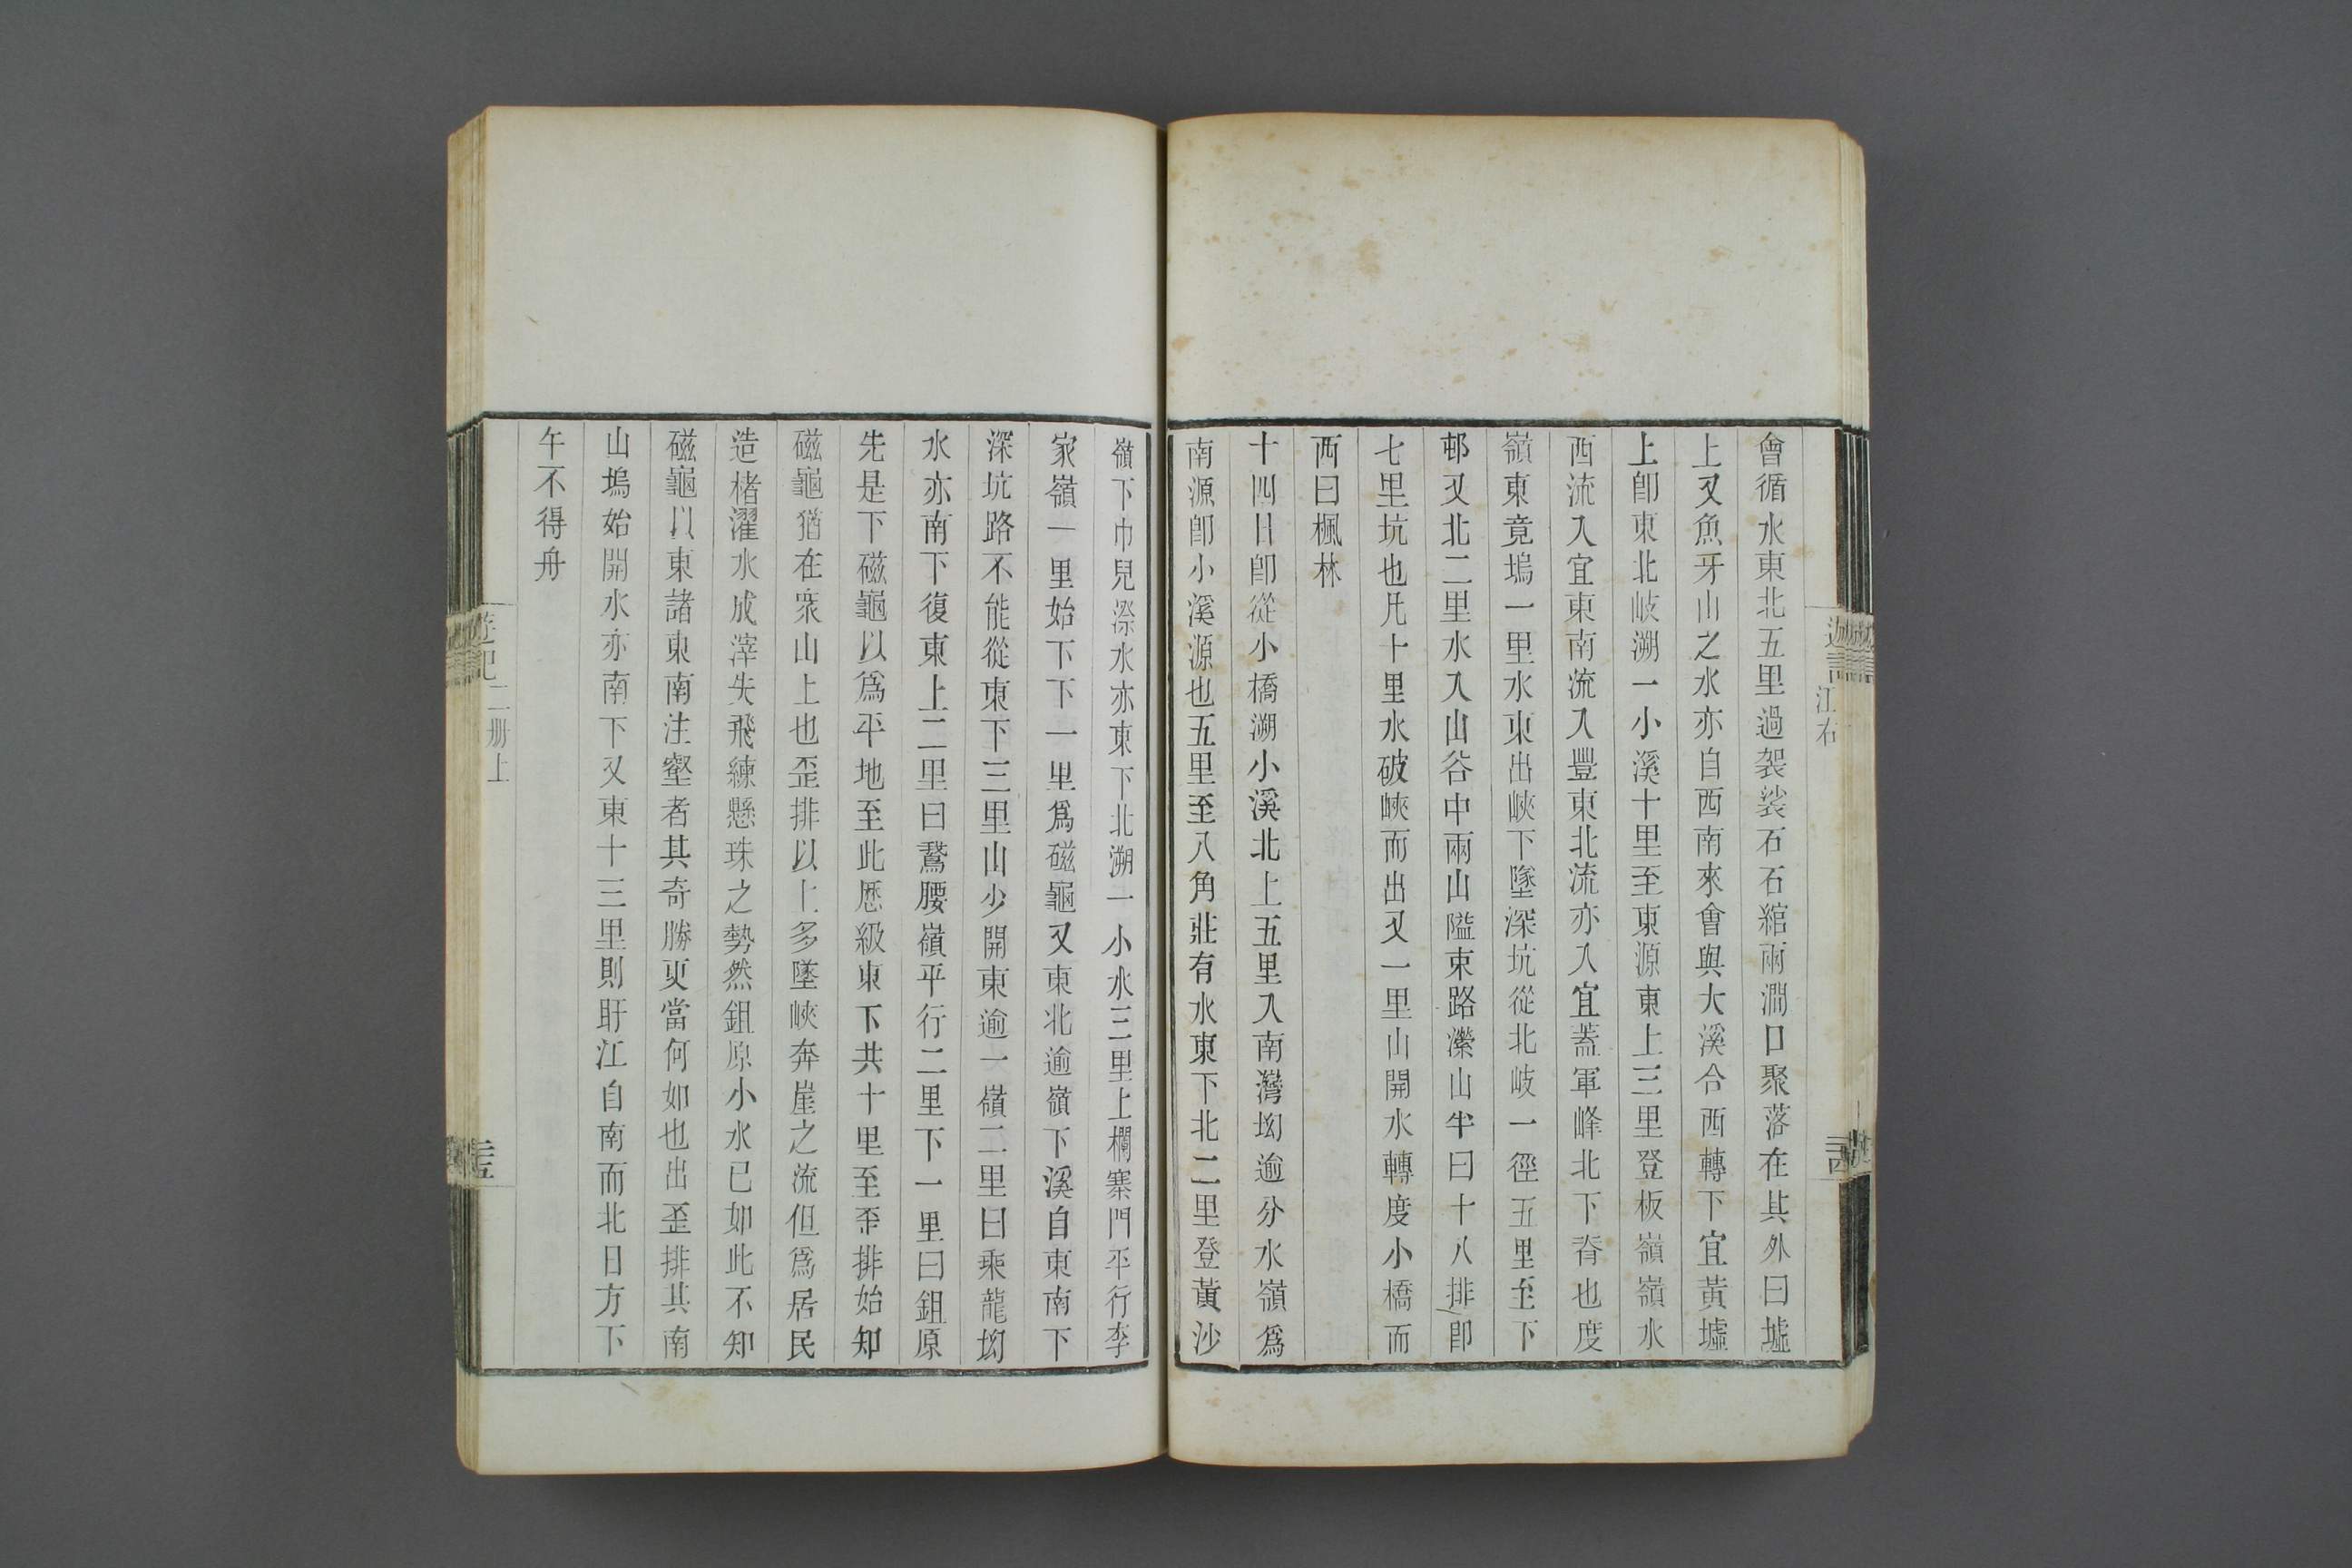 會循水東北五里過袈裟石石綰兩澗口聚落在其外曰墟
上又魚牙山之水亦自西南來會與大溪合西轉下宜黃墟
上卽東北岐溯一小溪十里至東源東上三里登板嶺嶺水
西流入宜東南流入豐東北流亦入宜蓋軍峰北下脊也度
嶺東竟塢一里水東出峽下墜深坑從北岐一徑五里至下
邨又北二里水入山谷中兩山隘束路瀠山半曰十八排卽
七里坑也凡十里水破峽而出又一里山開水轉度小橋而
西曰楓林
十四日卽從小橋溯小溪北上五里入南灣坳逾分水嶺爲
南源卽小溪源也五里至八角莊有水東下北二里登黃沙
嶺下巾兒漈水亦東下北溯一小水三里上欄寨門平行李
家嶺一里始下下一里爲磁龜又東北逾嶺下溪自東南下
深坑路不能從東下三里山少開東逾一嶺二里曰乘龍坳
水亦南下復東上二里曰鵞腰嶺平行二里下一里曰鉏原
先是下磁龜以爲平地至此歷級東下共十里至歪排始知
磁龜猶在衆山上也歪排以上多墜峽奔崖之流但爲居民
造楮濯水成滓失飛練懸珠之勢然鉏原小水已如此不知
磁龜以東諸東南注壑者其奇勝更當何如也出歪排其南
山塢始開水亦南下又東十三里則盱江自南而北日方下
午不得舟
遊記 二册上
江右